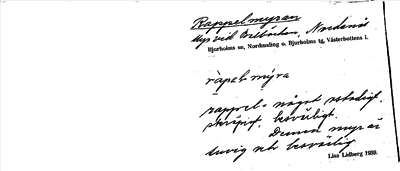 Rappelmyran
Myr vid Brelbäcken, Nordanås
Bjurholms sn, Nordmaling o. Bjurholms tg, Västerbottens l.
ràpel mýra
rappel = något ostadigt,
skräpigt, besvärligt.
Denna myr är
tuvig och besvärlig
Lisa Lidberg 1930.